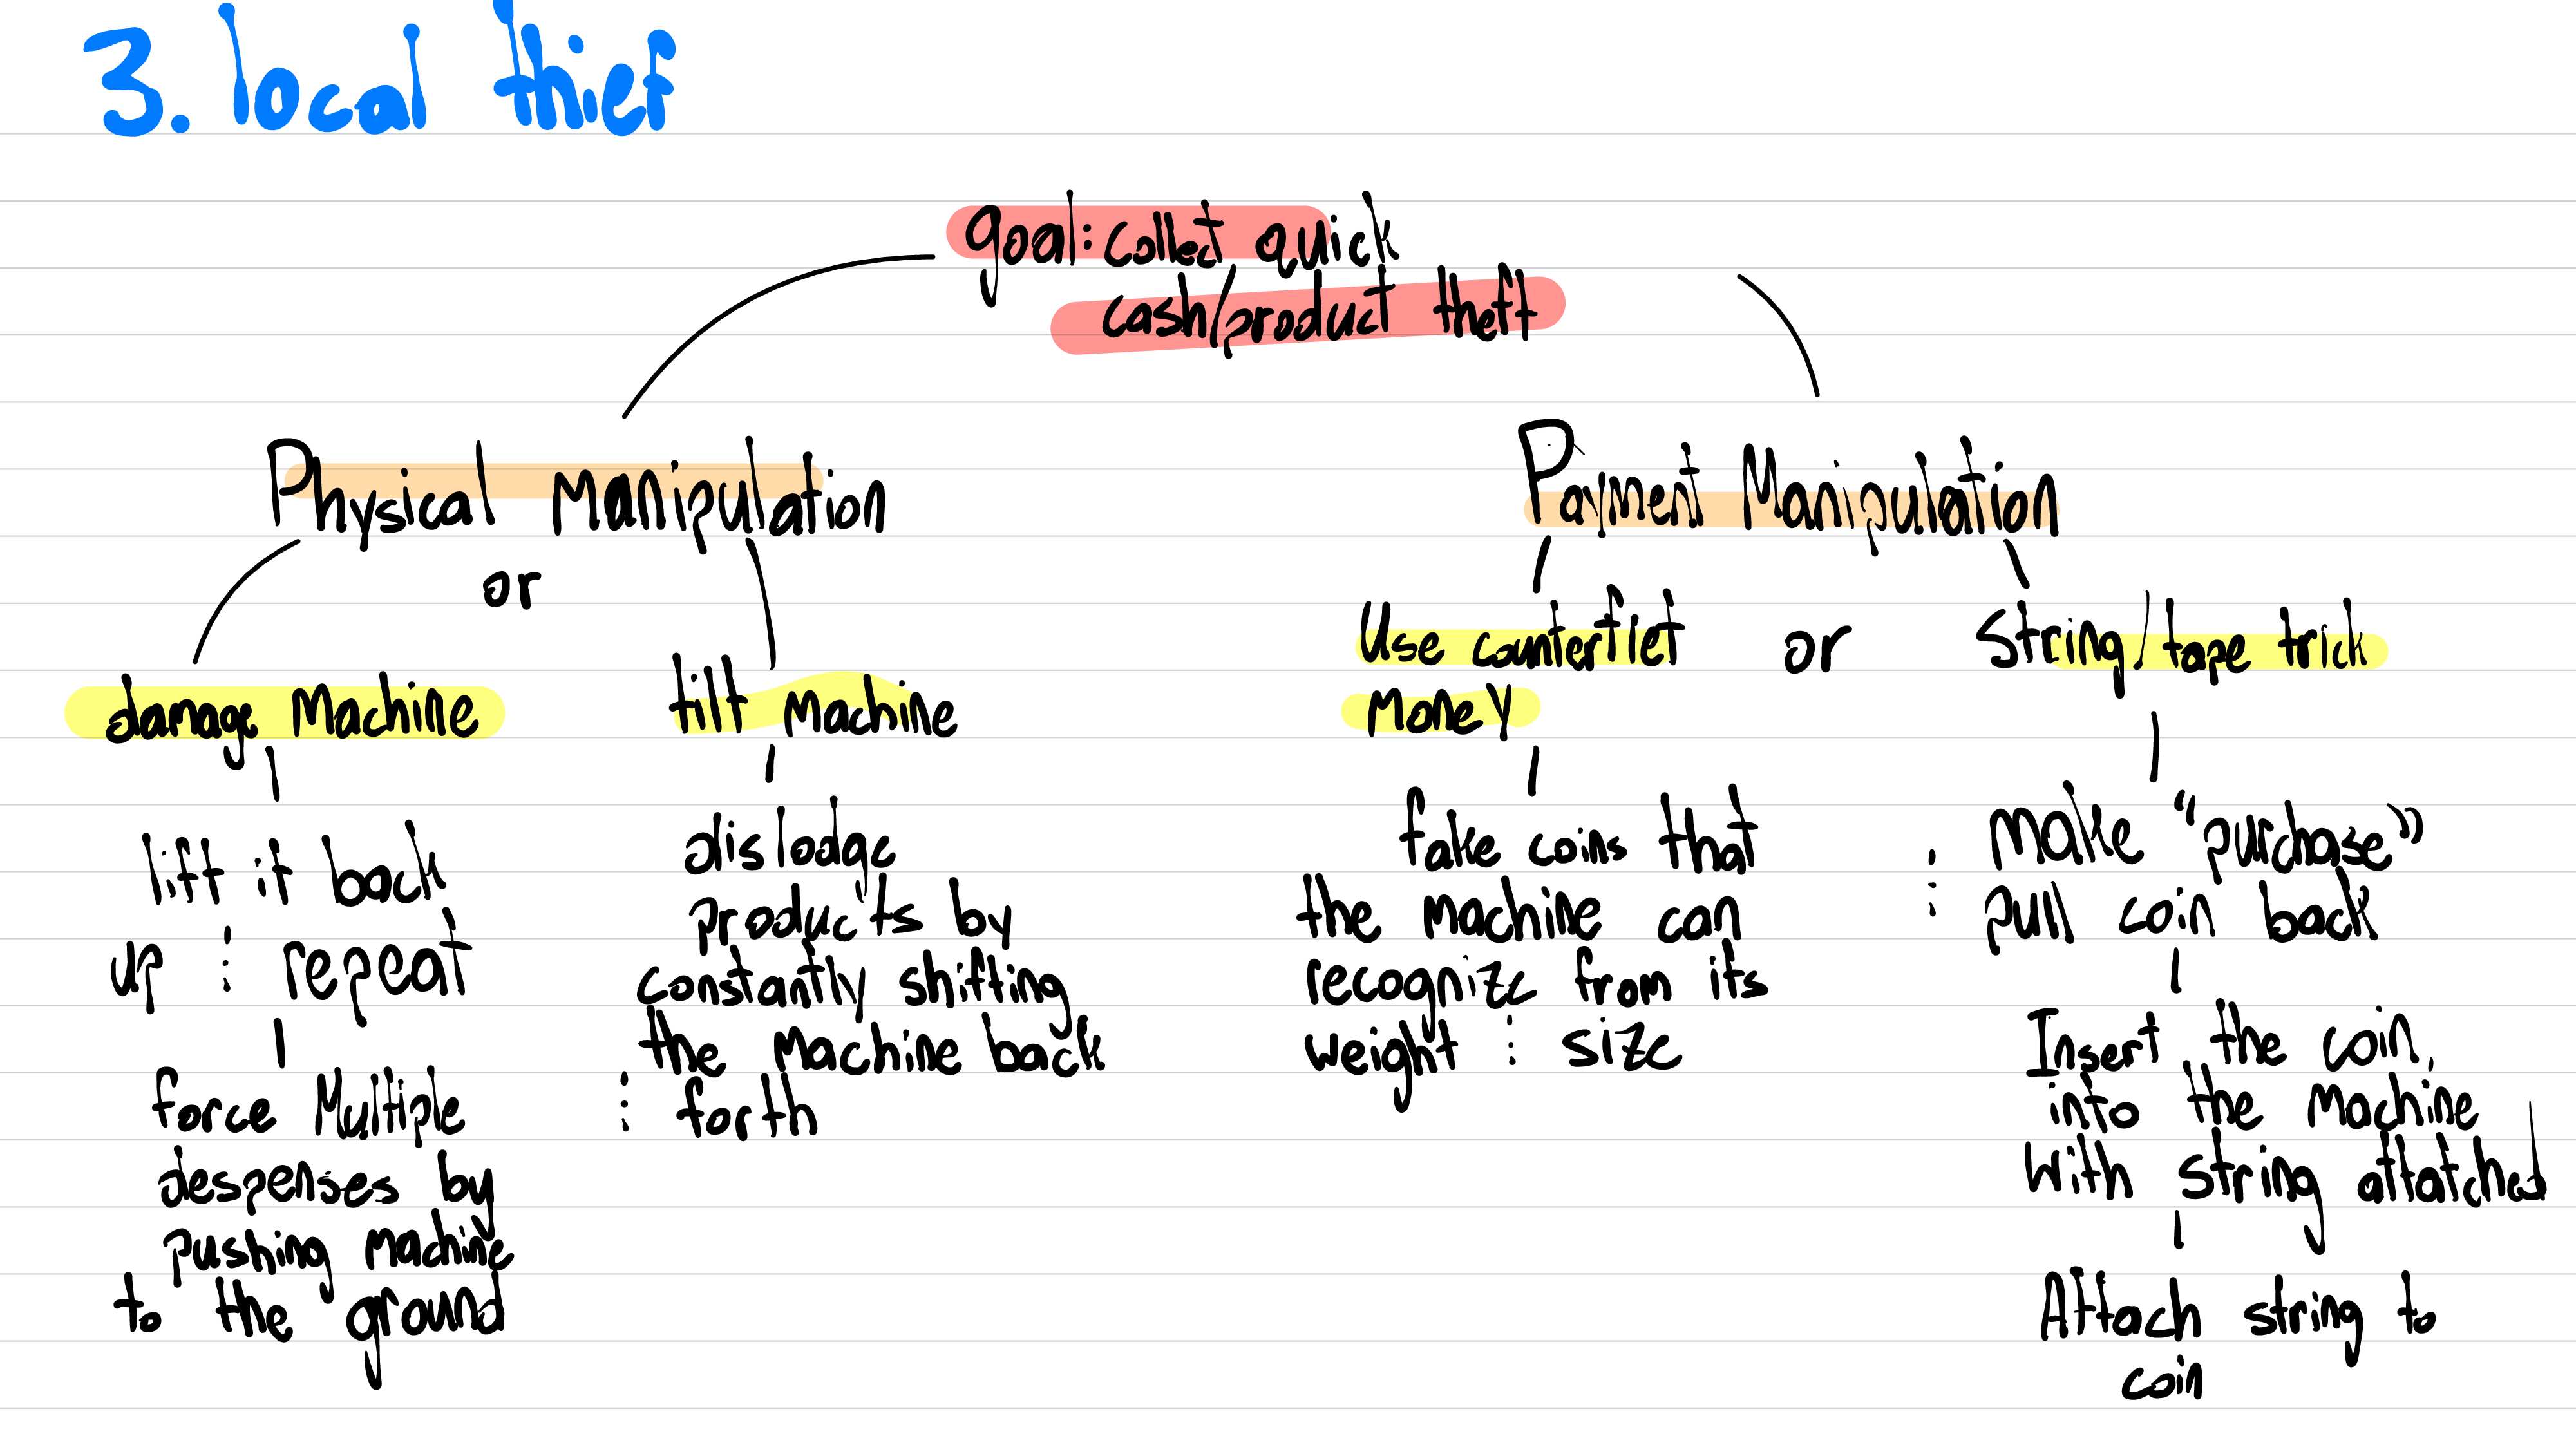 3. local thief
goal: collect quick
cash/product theft
Physical Manipulation
or
damage Machine
lift it back
up : repeat
force Multiple
despenses by
pushing Machine
to the ground
tilt Machine
dislodge
products by
constantly shifting
the Machine back
: forth
Payment Manipulation
Use counterfiet
Money
or
String/tape trick
fake coins that
the Machine can
recognize from its
weight : size
Make "purchase"
: pull coin back
Insert the coin
into the Machine
with string attatched
Attach string to
coin